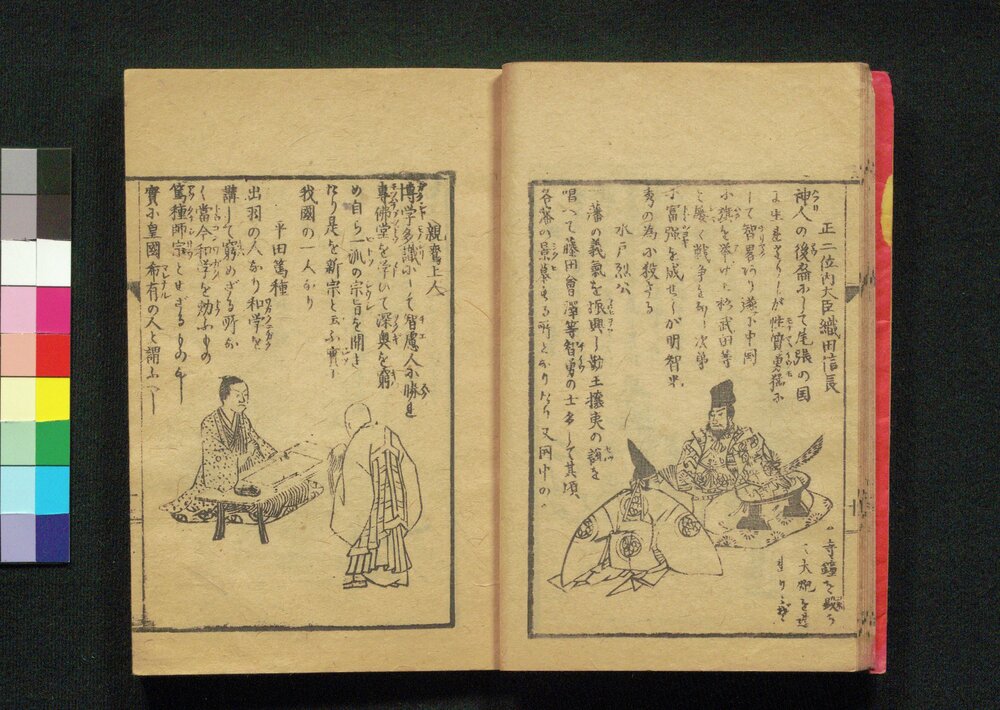 正二位内大臣織田信長
神人の後裔にして尾張の国
に生 性質勇猛に
して智畧 遂に中国
に旗を挙げ上杉武田等
と屡〻戦争 次第
に富強を成せしが明智光
秀の為に殺さる
水戸烈公
藩の義氣を振興し勤王攘夷の説を
唱へて藤田會澤等智勇の士 其頃
各藩の景慕する所となりたり又国中の
寺鐘を毀ち
て大砲を造

親鸞上人
博学多識にして智慮人に勝れ
專佛堂を学びて深奥を窮
め自ら一派の宗旨を開き
たり是を新宗と云ふ實に
我國の一人なり
平田篤種
出羽の人なり和学を
講じて窮めざる所な
く當今和学を効ふもの
篤種師宗とせざるものなし
實に皇國希有の人と謂ふべし